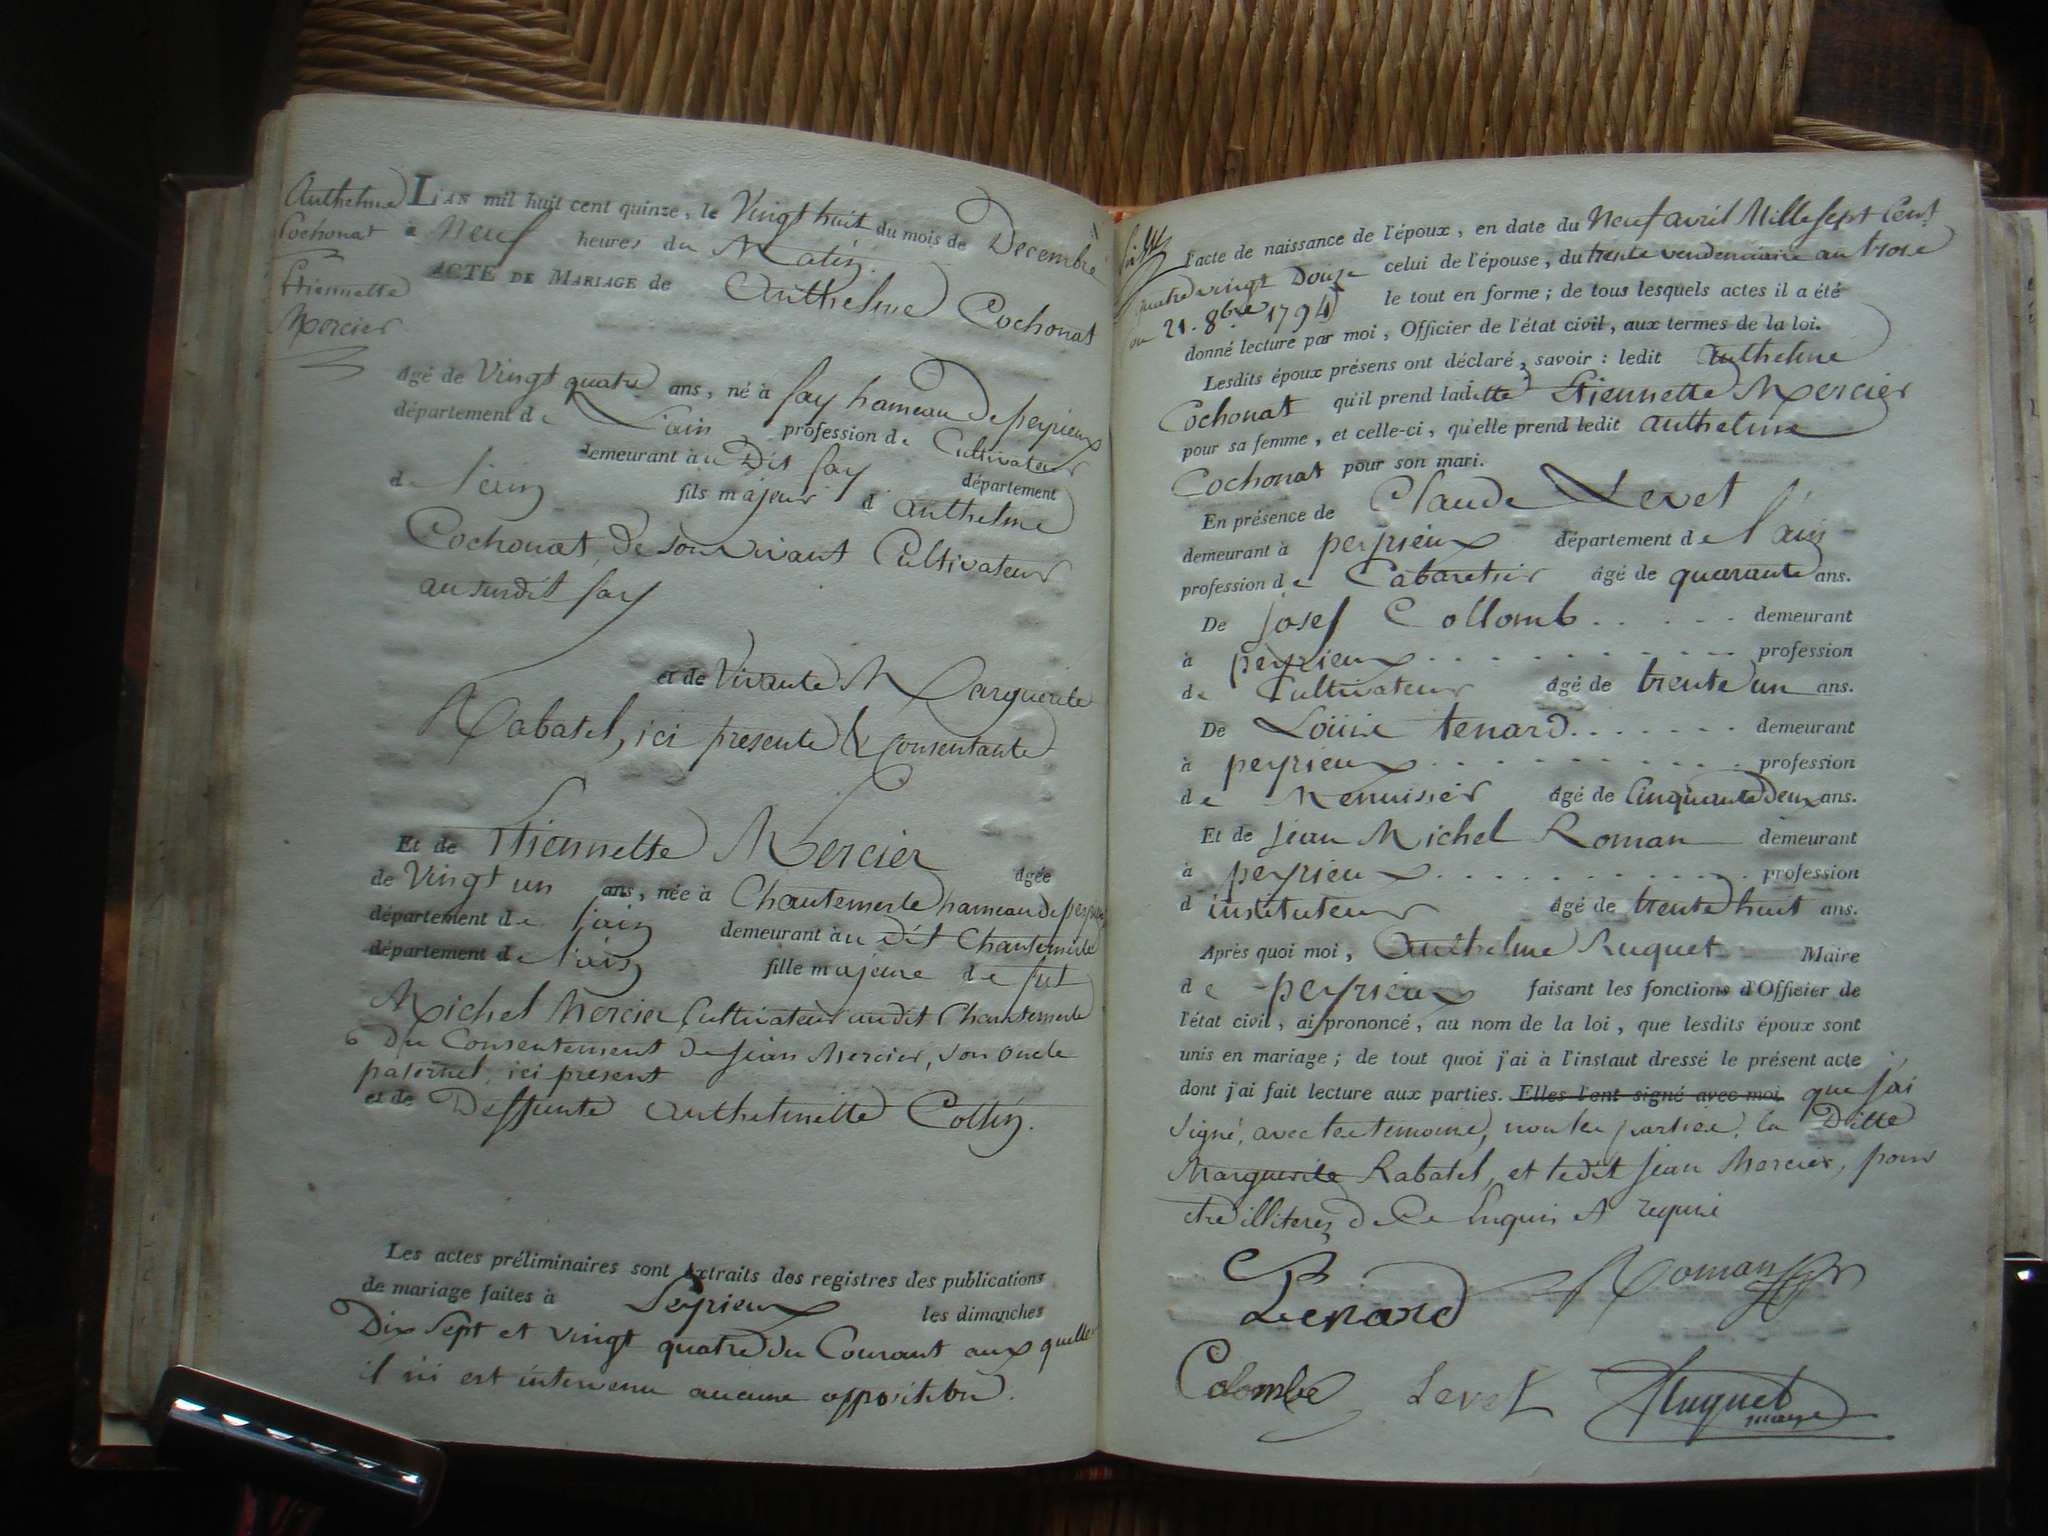 Anthelme
Cochonat
Etiennette
Mercier
L'AN mil huit cent quinze, le Vingt huit du mois de Decembre
à Neuf heures du Matin.
ACTE DE MARIAGE de Anthelme Cochonat
âgé de Vingt quatre ans, né à fay hameau de peyrieux
département de L'ain profession de Cultivateur
demeurant au Dit fay département
de l'ain fils majeur d'Anthelme
Cochonat, de son vivant Cultivateur
au susdit fay
et de Vivante Marguerite
Rabatel, ici presente & Consentante
Et de Etiennette Mercier âgée
de Vingt un ans, née à Chantemerle hameau de peyrieux
département de l'ain demeurant au dit Chantemerle
département de l'ain fille majeure de fut
Michel Mercier Cultivateur audit Chantemerle
du Consentement de Jean Mercier, son oncle
paternel, ici present
et de Deffunte Anthelmette Collin.
Les actes préliminaires sont extraits des registres des publications
de mariage faites à Peyrieux les dimanches
Dix Sept et vingt quatre du Courant aux quelles
il n'i est intervenu aucune opposition.
l'acte de naissance de l'époux, en date du Neuf avril Mille Sept Cent
quatre vingt Douze celui de l'épouse, du trente vendemiaire an trois
ou 21. 8bre 1794) le tout en forme; de tous lesquels actes il a été
donné lecture par moi, Officier de l'état civil, aux termes de la loi.
Lesdits époux présens ont déclaré, savoir: ledit Anthelme
Cochonat qu'il prend laditte Etiennette Mercier
pour sa femme, et celle-ci, qu'elle prend ledit Anthelme
Cochonat pour son mari.
En présence de Claude Levet
demeurant à peyrieux département de l'ain
profession de Cabaretier âgé de quarante ans.
De Josef Collomb demeurant
à peyrieux profession
de Cultivateur âgé de trente un ans.
De Louis tenard demeurant
à peyrieux profession
de Menuisier âgé de Cinquante deux ans.
Et de Jean Michel Roman demeurant
à peyrieux profession
d'instituteur âgé de trente huit ans.
Après quoi moi, Anthelme Ruquet Maire
de peyrieux faisant les fonctions d'Officier de
l'état civil, ai prononcé, au nom de la loi, que lesdits époux sont
unis en mariage; de tout quoi j'ai à l'instant dressé le présent acte
dont j'ai fait lecture aux parties. Elles l'ont signé avec moi que j'ai
signé, avec les temoins, non les parties, la Ditte
Marguerite Rabatel, et ledit Jean Mercier, pour
etre illiteres de Ce Enquis et requis
Tenard Roman
Colombe Levet Ruquet
maire